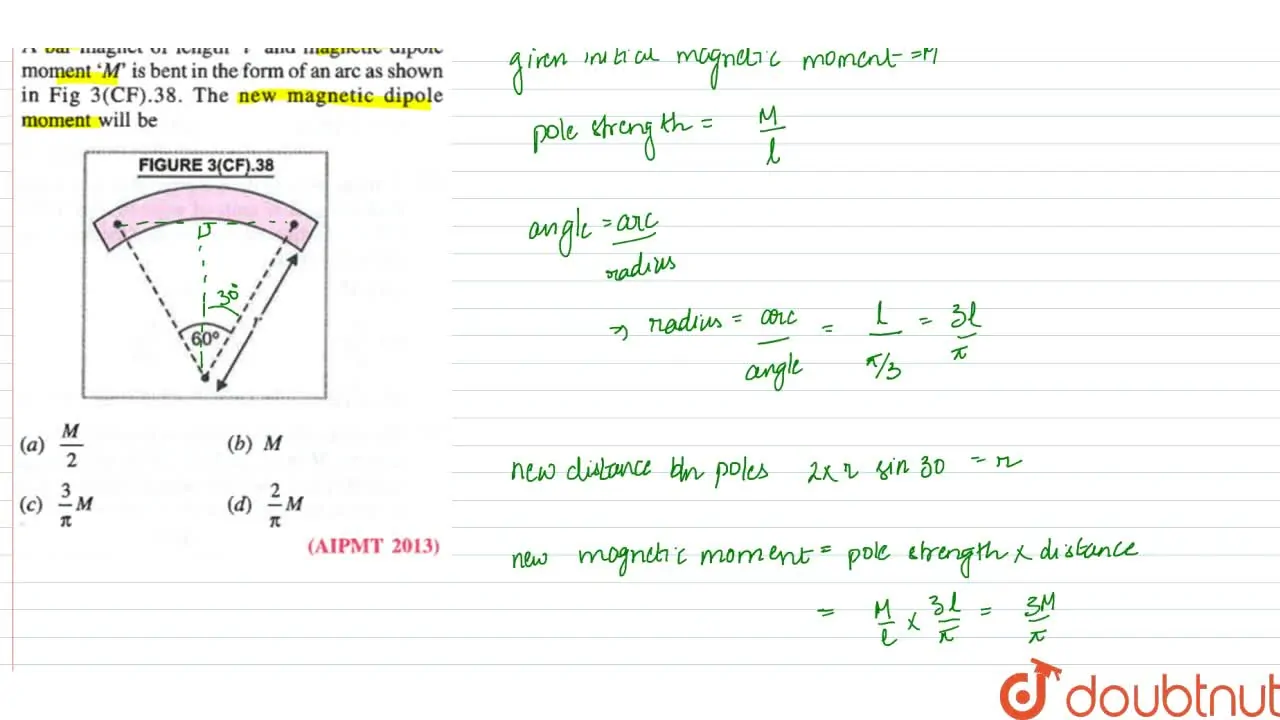 A bar magnet of length 'l' and magnetic dipole
moment 'M' is bent in the form of an arc as shown
in Fig 3(CF).38. The new magnetic dipole
moment will be
FIGURE 3(CF).38
30°
r
60°
(a) M/2
(b) M
(c) 3/π M
(d) 2/π M
(AIPMT 2013)
given initial magnetic moment = M
pole strength = M/l
angle = arc/radius
⇒ radius = arc/angle = l/π/3 = 3l/π
new distance b/n poles 2 x r sin 30 = r
new magnetic moment = pole strength x distance
= M/l x 3l/π = 3M/π
doubtnut